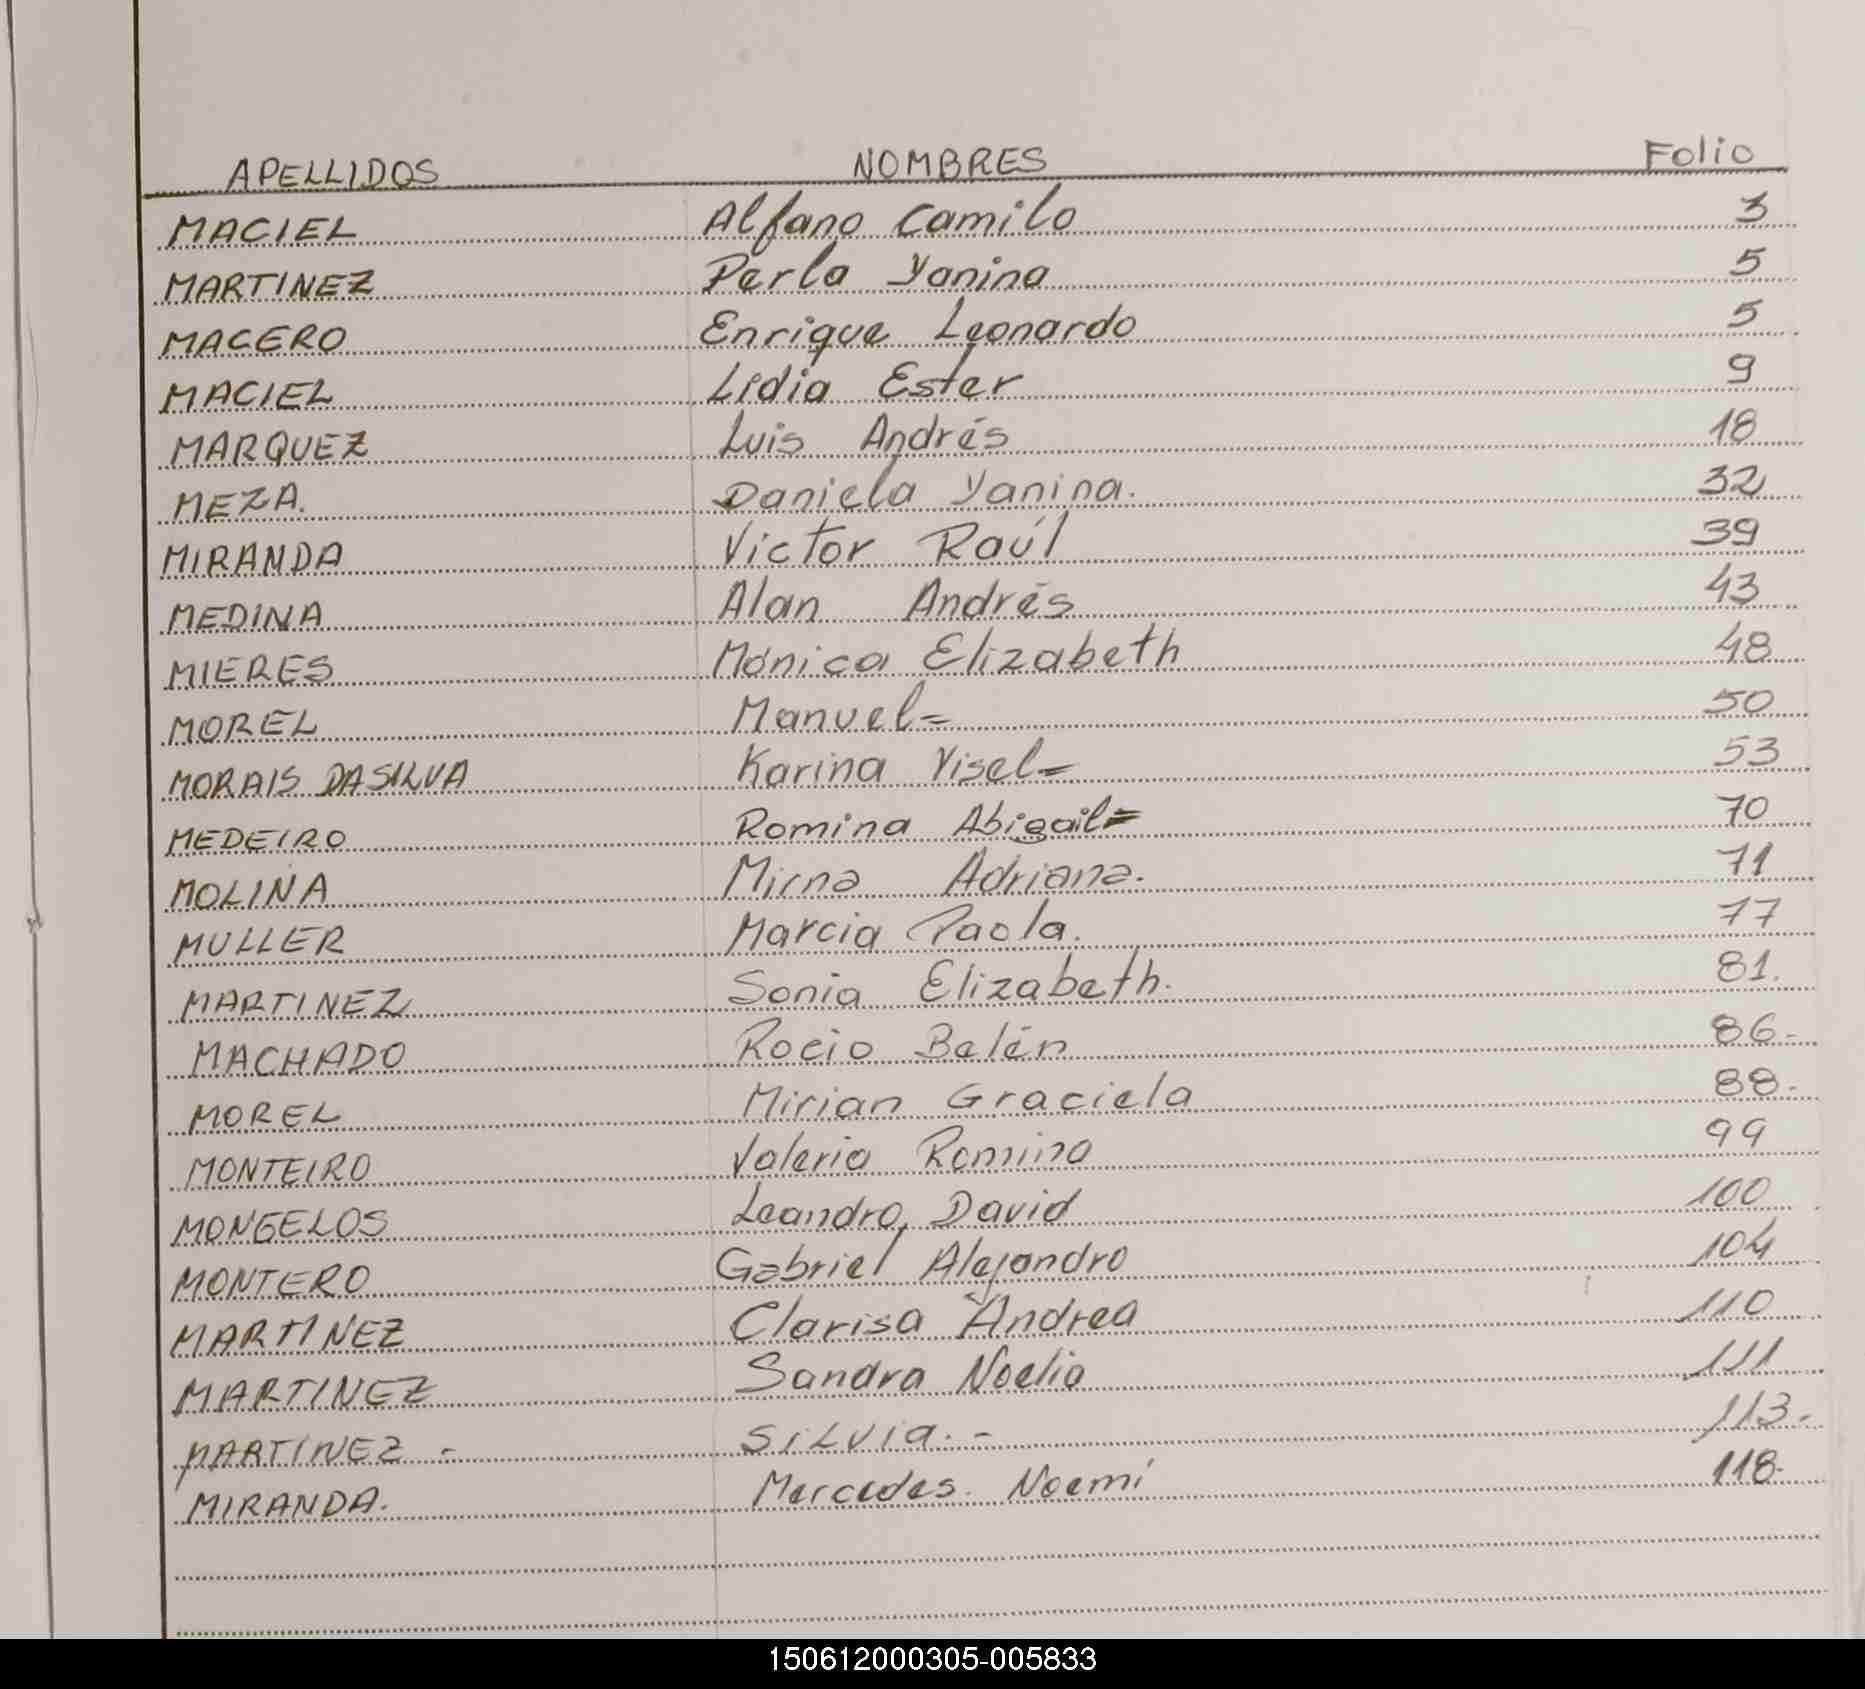 APELLIDOS NOMBRES Folio
MACIEL Alfano Camilo 3
MARTINEZ Perla Yanina 5
MACERO Enrique Leonardo 5
MACIEL Lidia Ester 9
MARQUEZ Luis Andrés 18
MEZA. Daniela Yanina. 32
MIRANDA Victor Raúl 39
MEDINA Alan Andrés 43
MIERES Mónica Elizabeth 48
MOREL Manuel= 50
MORAIS DASILVA Karina Yisel= 53
MEDEIRO Romina Abigail= 70
MOLINA Mirna Adriana. 71
MULLER Marcia Paola. 77
MARTINEZ Sonia Elizabeth. 81.
MACHADO Rocio Belén 86-
MOREL Mirian Graciela 88-
MONTEIRO Valeria Romina 99
MONGELOS Leandro David 100
MONTERO Gabriel Alejandro 104
MARTINEZ Clarisa Andrea 110
MARTINEZ Sandra Noelia 111
MARTINEZ - SILVIA.- 113-
MIRANDA. Mercedes. Noemí 118-
150612000305-005833